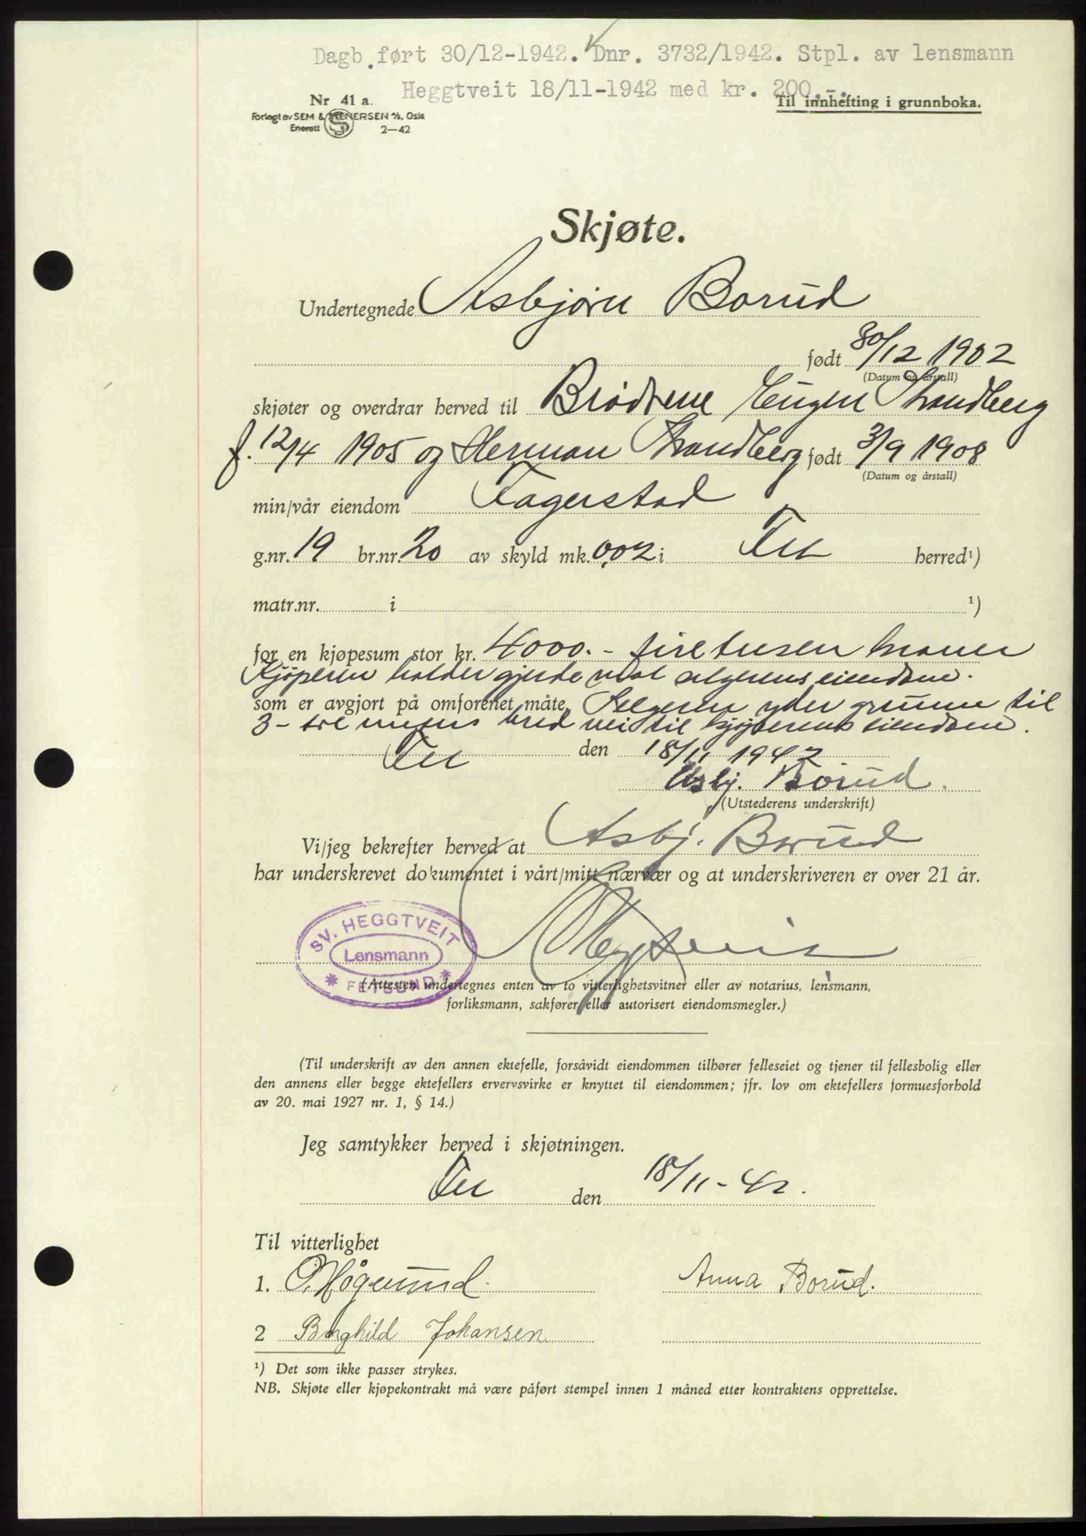 Dagb. ført 30/12-1942. Dnr. 3732/1942. Stpl. av lensmann
Heggtveit 18/11-1942 med kr. 200.-.
Nr 41 a.
Til innhefting i grunnboka.
Forlagt av SEM & STENERSEN A/s, Oslo
Enerett 2—42
Skjøte.
Undertegnede Asbjørn Borud
født 30/12 1902
(Datum og årstall)
skjøter og overdrar herved til Brødrene Eugen Strandberg
f. 12/4 1905 og Herman Strandberg født 3/9 1908
(Datum og årstall)
min/vår eiendom Fagerstad
g.nr. 19 br.nr. 20 av skyld mk. 0,02 i Fet herred¹)
matr.nr. i ¹)
for en kjøpesum stor kr. 4000.- fire tusen kroner
Kjøperen holder gjerde mot selgerens eiendom.
som er avgjort på omforenet måte. Selgeren yder grunn til
3 - tre meters bred vei til kjøperens eiendom.
Fet den 18/11 1942
Asbj. Borud.
(Utstederens underskrift)
Vi/jeg bekrefter herved at Asbj. Borud
har underskrevet dokumentet i vårt/mitt nærvær og at underskriveren er over 21 år.
SV. HEGGTVEIT
Lensmann
* FETSUND *
Heggtveit
(Attesten undertegnes enten av to vitterlighetsvitner eller av notarius, lensmann,
forliksmann, sakfører eller autorisert eiendomsmegler.)
(Til underskrift av den annen ektefelle, forsåvidt eiendommen tilhører felleseiet og tjener til fellesbolig eller
den annens eller begge ektefellers ervervsvirke er knyttet til eiendommen; jfr. lov om ektefellers formuesforhold
av 20. mai 1927 nr. 1, § 14.)
Jeg samtykker herved i skjøtningen.
Fet den 18/11-42.
Til vitterlighet
1. O. Høgsund. Anna Borud.
2 Borghild Johansen
¹) Det som ikke passer strykes.
NB. Skjøte eller kjøpekontrakt må være påført stempel innen 1 måned etter kontraktens opprettelse.